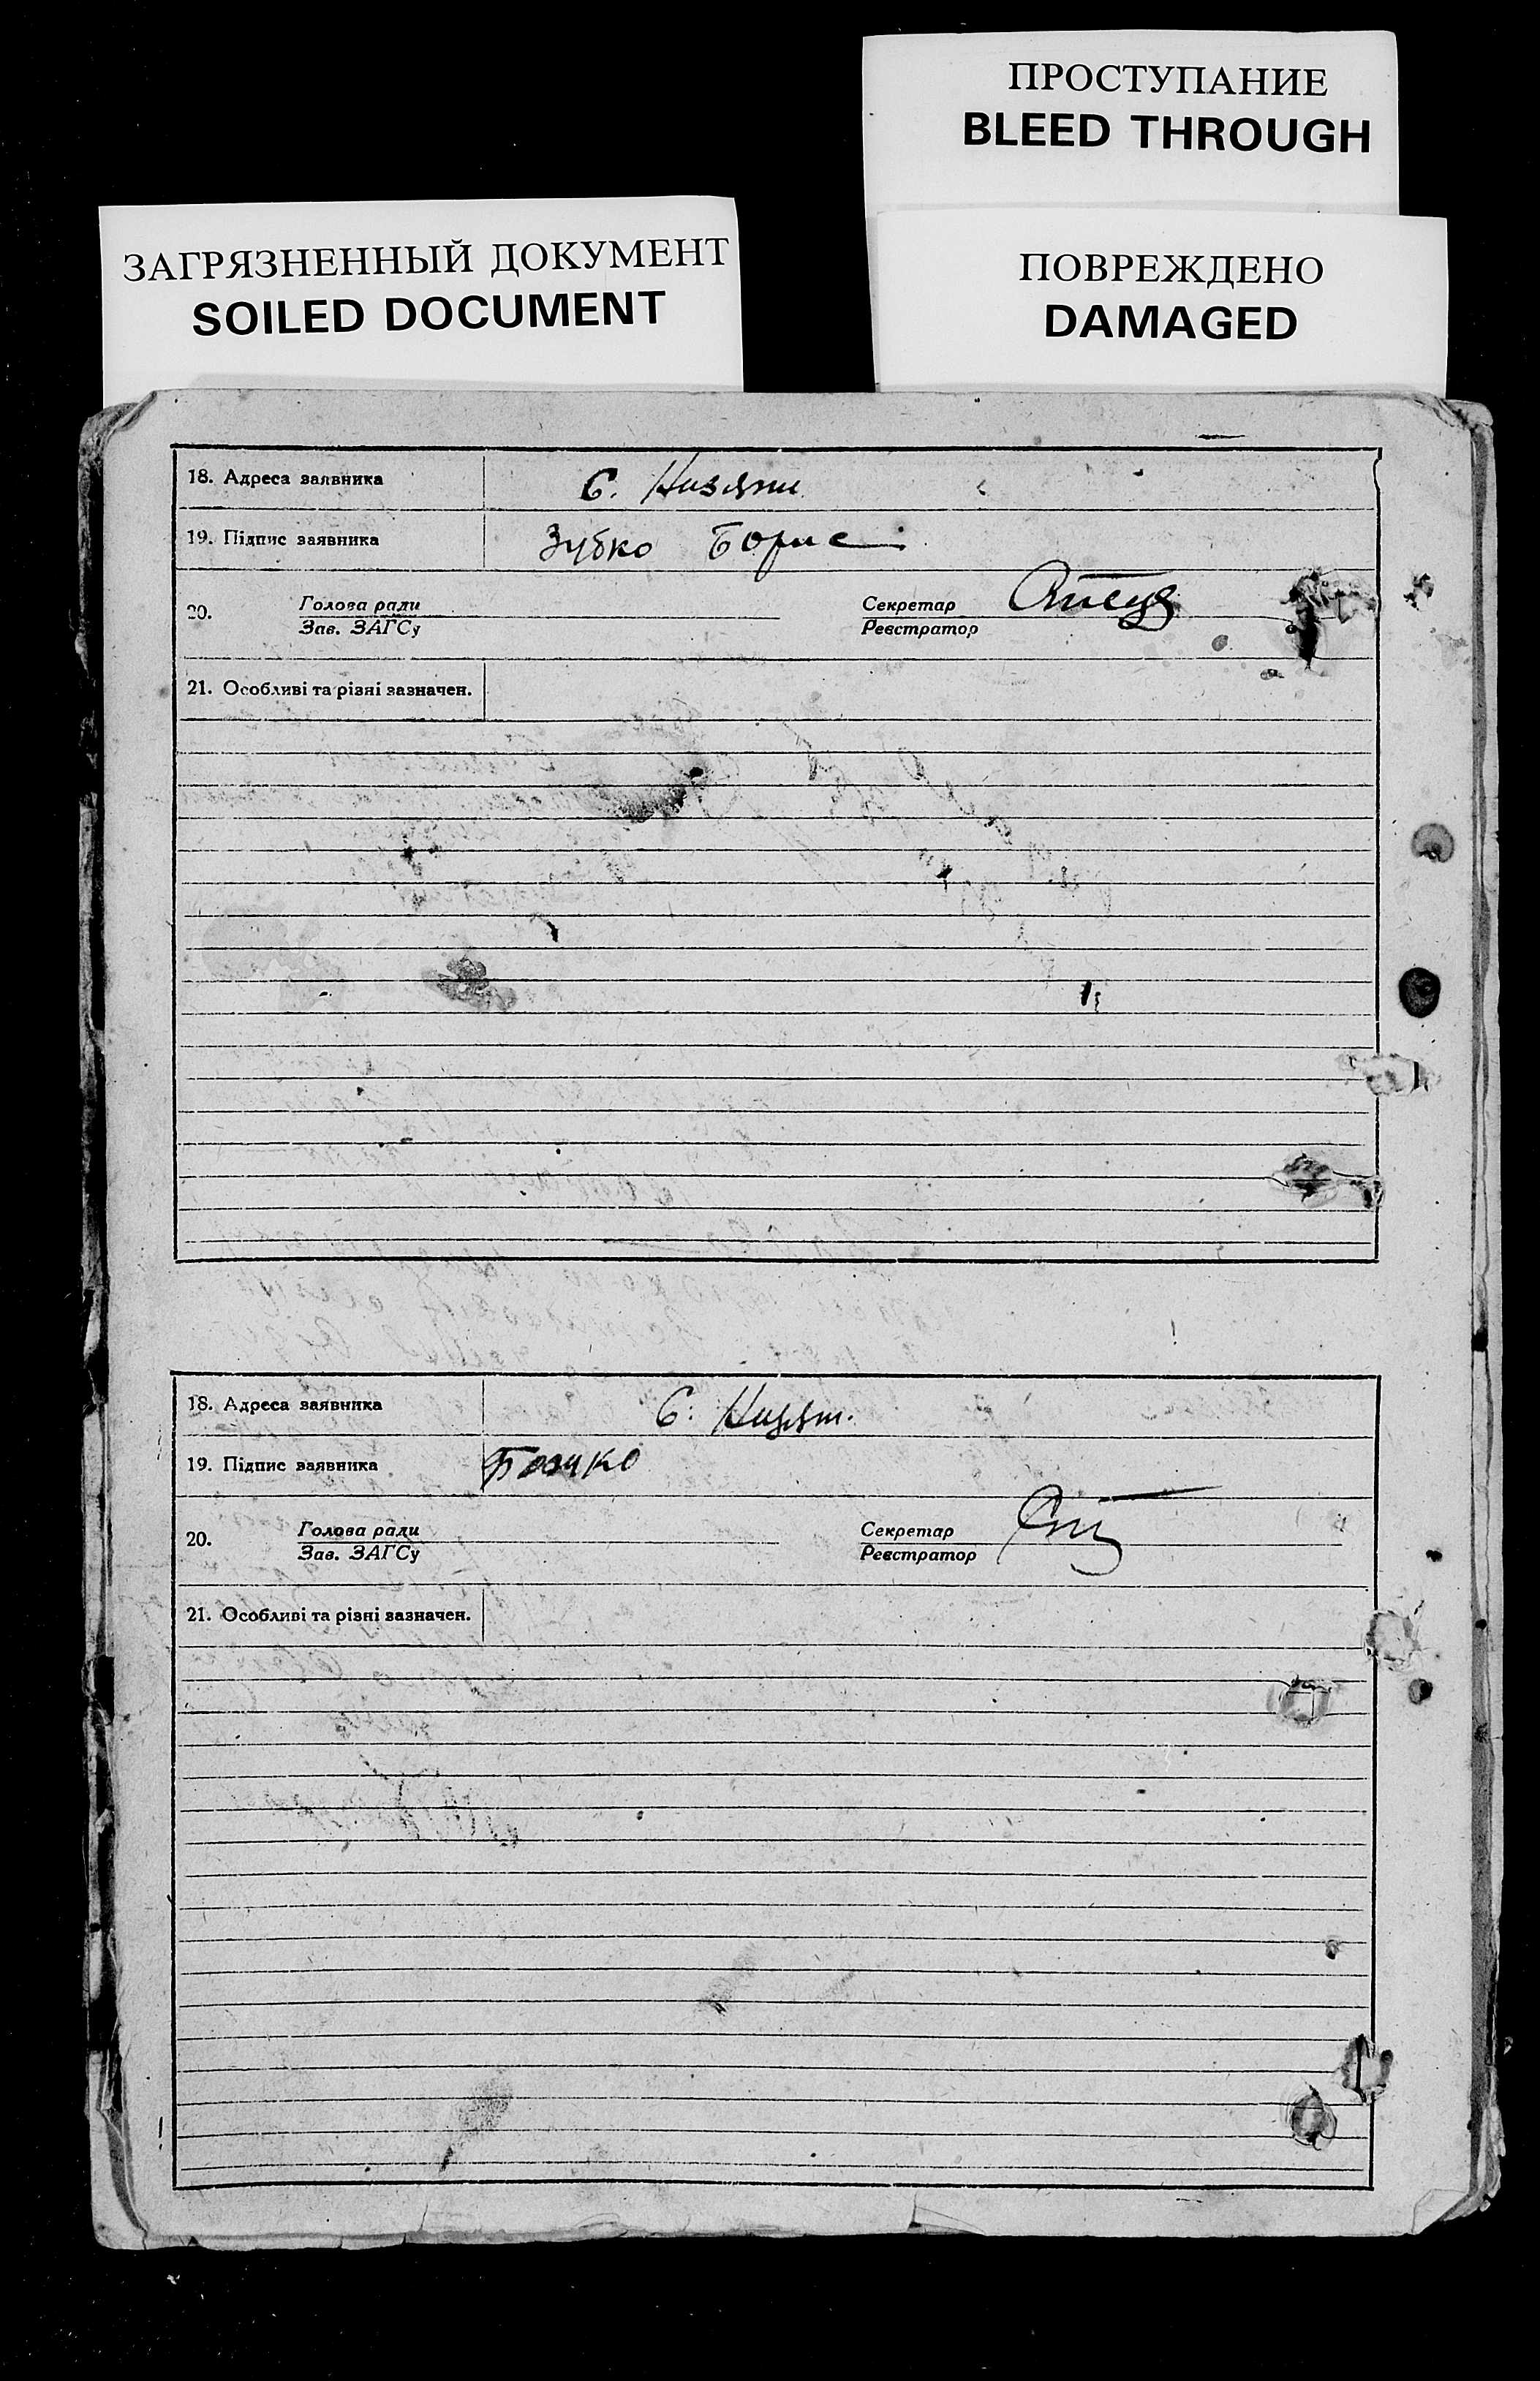 ПРОСТУПАНИЕ
BLEED THROUGH
ЗАГРЯЗНЕННЫЙ ДОКУМЕНТ
SOILED DOCUMENT
ПОВРЕЖДЕНО
DAMAGED
18. Адреса заявника С. Низяни
19. Підпис заявника Зубко Борис
20. Голова ради Секретар
Зав. ЗАГСу Реєстратор
21. Особливі та різні зазначен.
18. Адреса заявника С.
19. Підпис заявника
20. Голова ради Секретар
Зав. ЗАГСу Реєстратор
21. Особливі та різні зазначен.